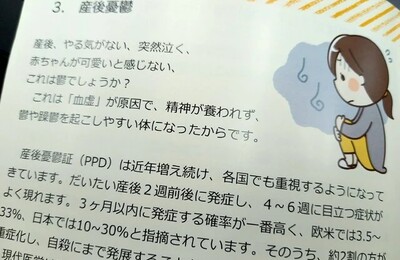 3. 産後憂鬱
産後、やる気がない、突然泣く、
赤ちゃんが可愛いと感じない、
これは鬱でしょうか？
これは「血虚」が原因で、精神が養われず、
鬱や躁鬱を起こしやすい体になったからです。
産後憂鬱証（PPD）は近年増え続け、各国でも重視するようになって
きています。だいたい産後２週前後に発症し、４～６週に目立つ症状が
よく現れます。３ヶ月以内に発症する確率が一番高く、欧米では3.5～
33％、日本では10～30％と指摘されています。そのうち、約2割の方が
重症化し、自殺にまで発展すること
現代医学